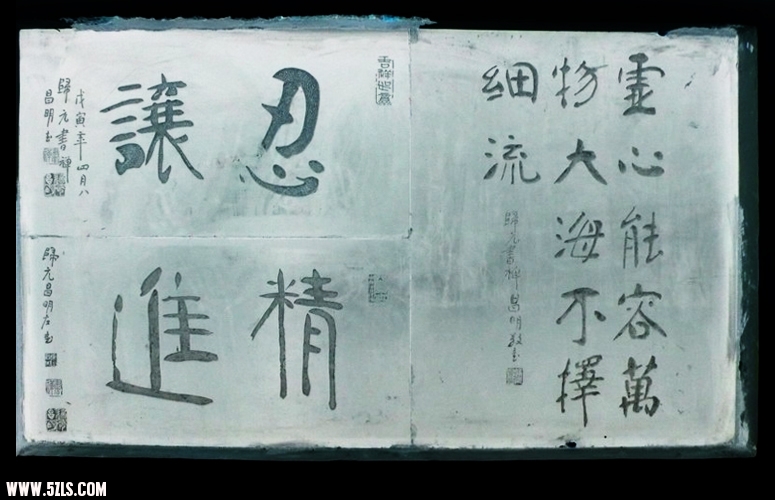 虛心能容萬
物大海不擇
細流
歸元書禪昌明敬书
忍讓
戊寅年四月八
歸元書禪
昌明书
精進
歸元昌明左书
WWW.5ZLS.COM